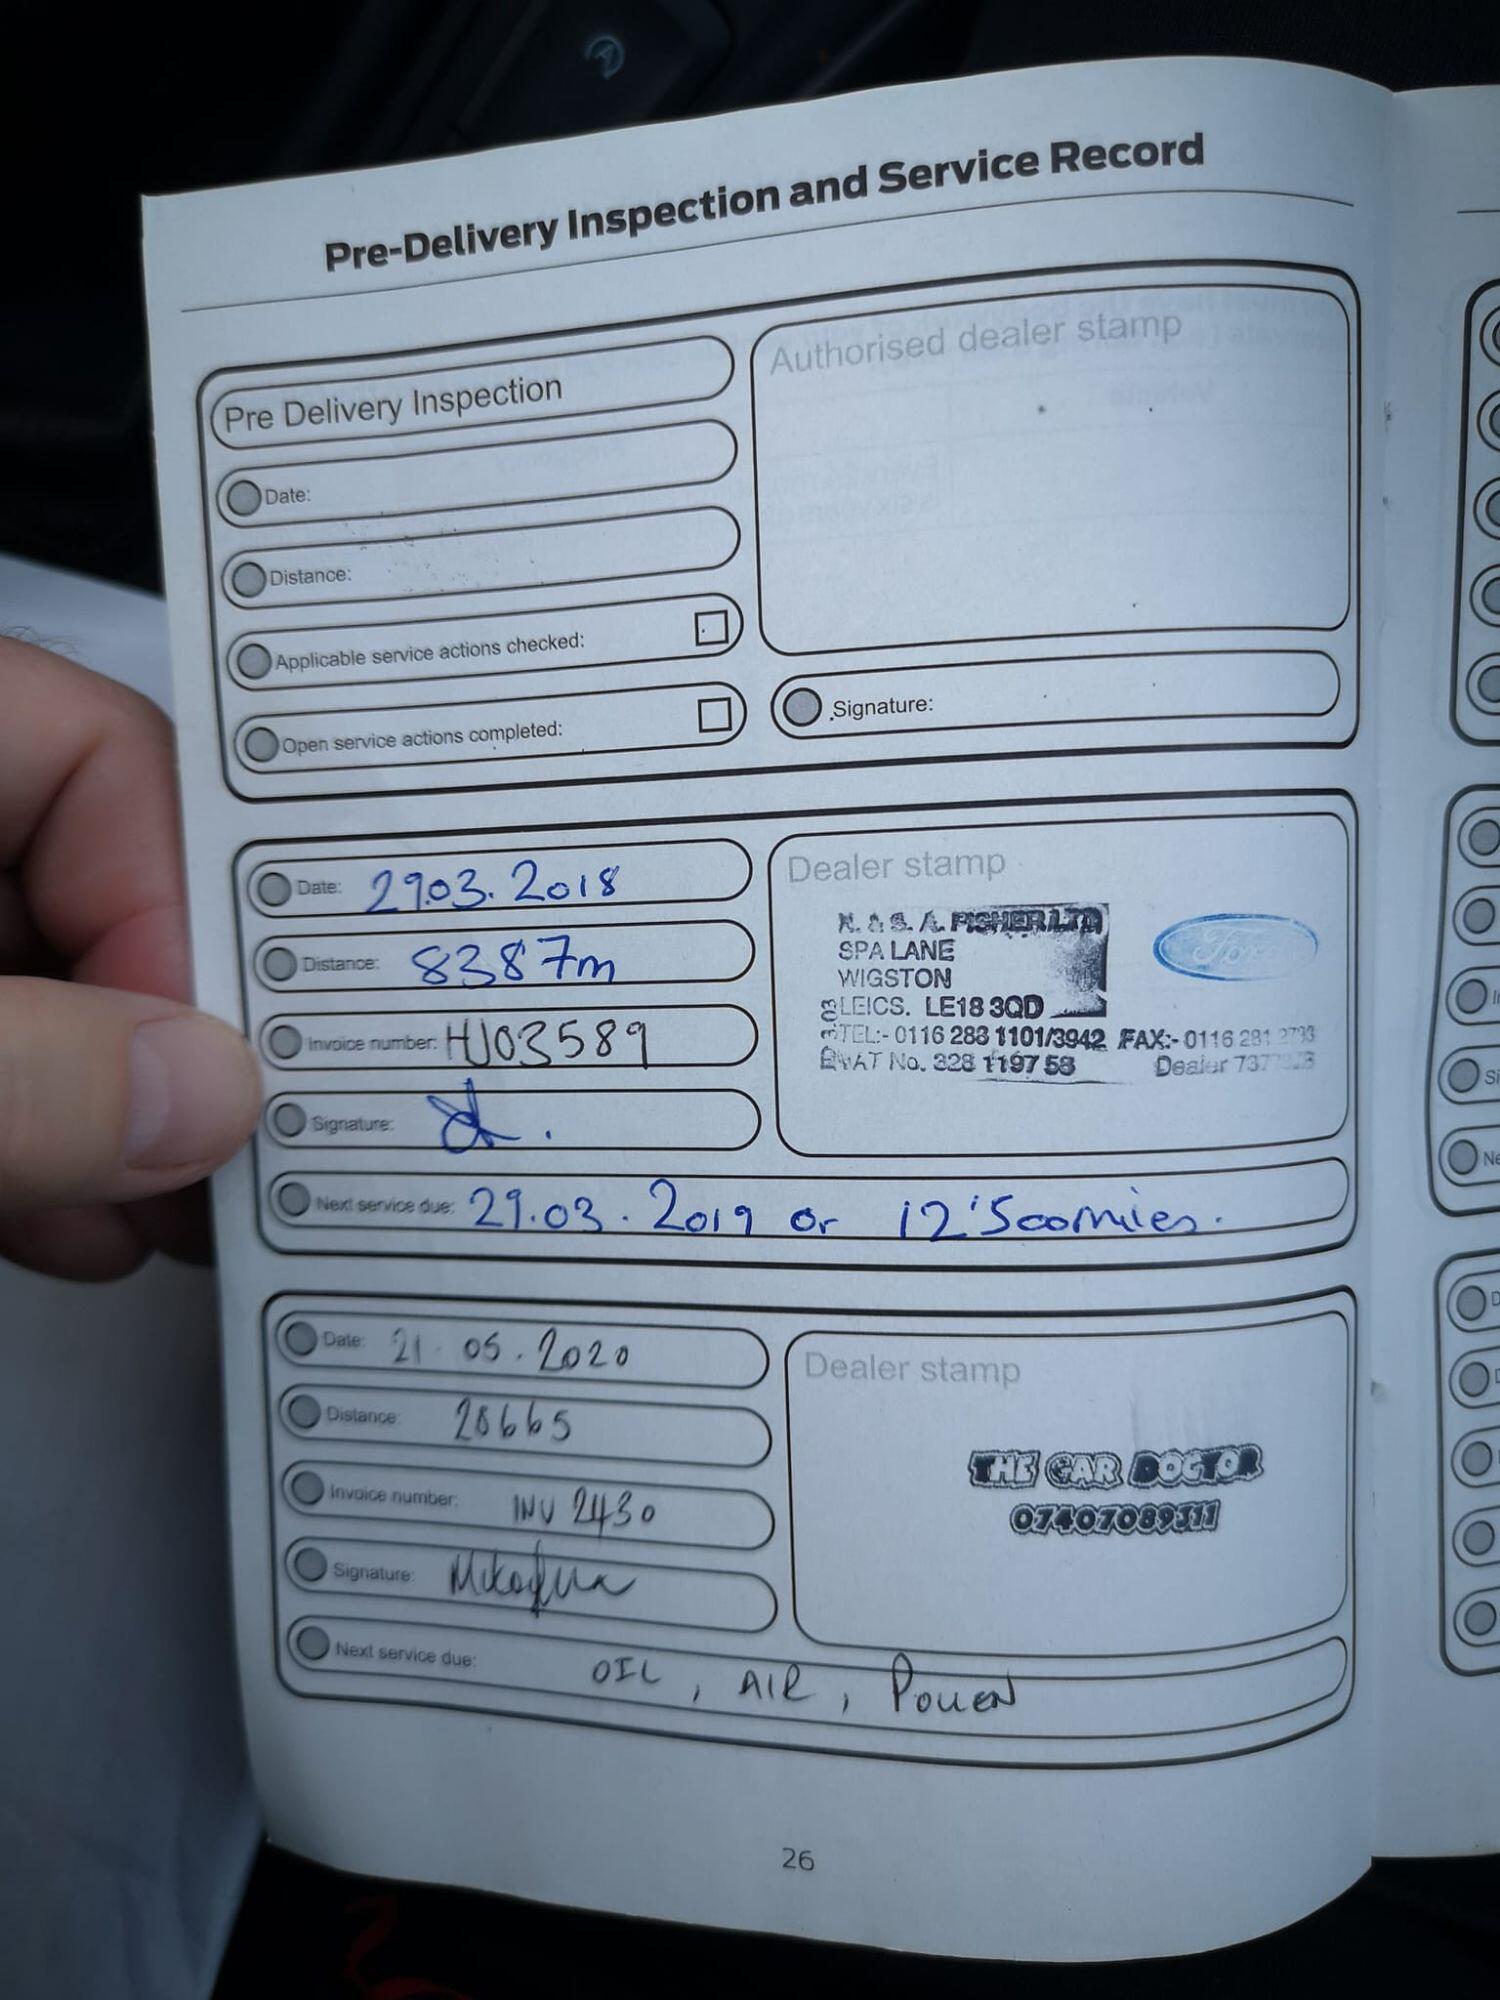 Pre-Delivery Inspection and Service Record
Pre Delivery Inspection
Date:
Distance:
Applicable service actions checked:
Open service actions completed:
Authorised dealer stamp
Signature:
Date: 29.03.2018
Distance: 8387m
Invoice number: HJ03589
Signature:
Dealer stamp
N. & S. A. FISHER LTD
SPA LANE
WIGSTON
LEICS. LE18 3QD
TEL:- 0116 283 1101/3942 FAX:- 0116 281 2793
VAT No. 328 1197 58 Dealer
Ford
Next service due: 29.03.2019 or 12'500miles.
Date: 21.05.2020
Distance: 28665
Invoice number: INV 2430
Signature:
Dealer stamp
THE CAR DOCTOR
07407089311
Next service due: OIL, AIR, POLLEN
26